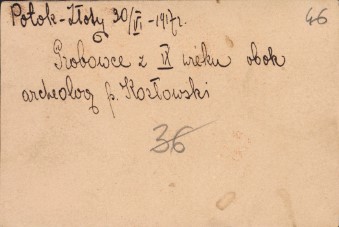 Potok-Złoty 30/VI-1917r. 46
Grobowce z IX wieku obok
archeolog p. Kozłowski
36